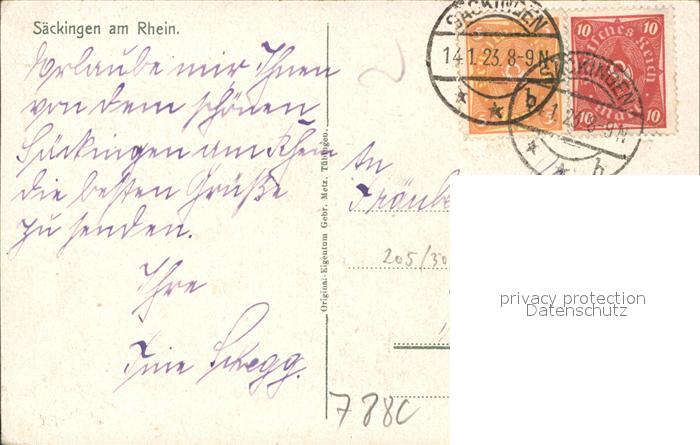 Säckingen am Rhein.
Erlaube mir Ihnen
von dem schönen
Säckingen am Rhein
die besten Grüße
zu senden.
Ihre
Original-Eigentum Gebr. Metz, Tübingen.
SÄCKINGEN
14.1.23. 8-9N
b
10 10
Deutsches Reich
10 10
SÄCKINGEN
8-9N
b
An
205/30
privacy protection
Datenschutz
788C